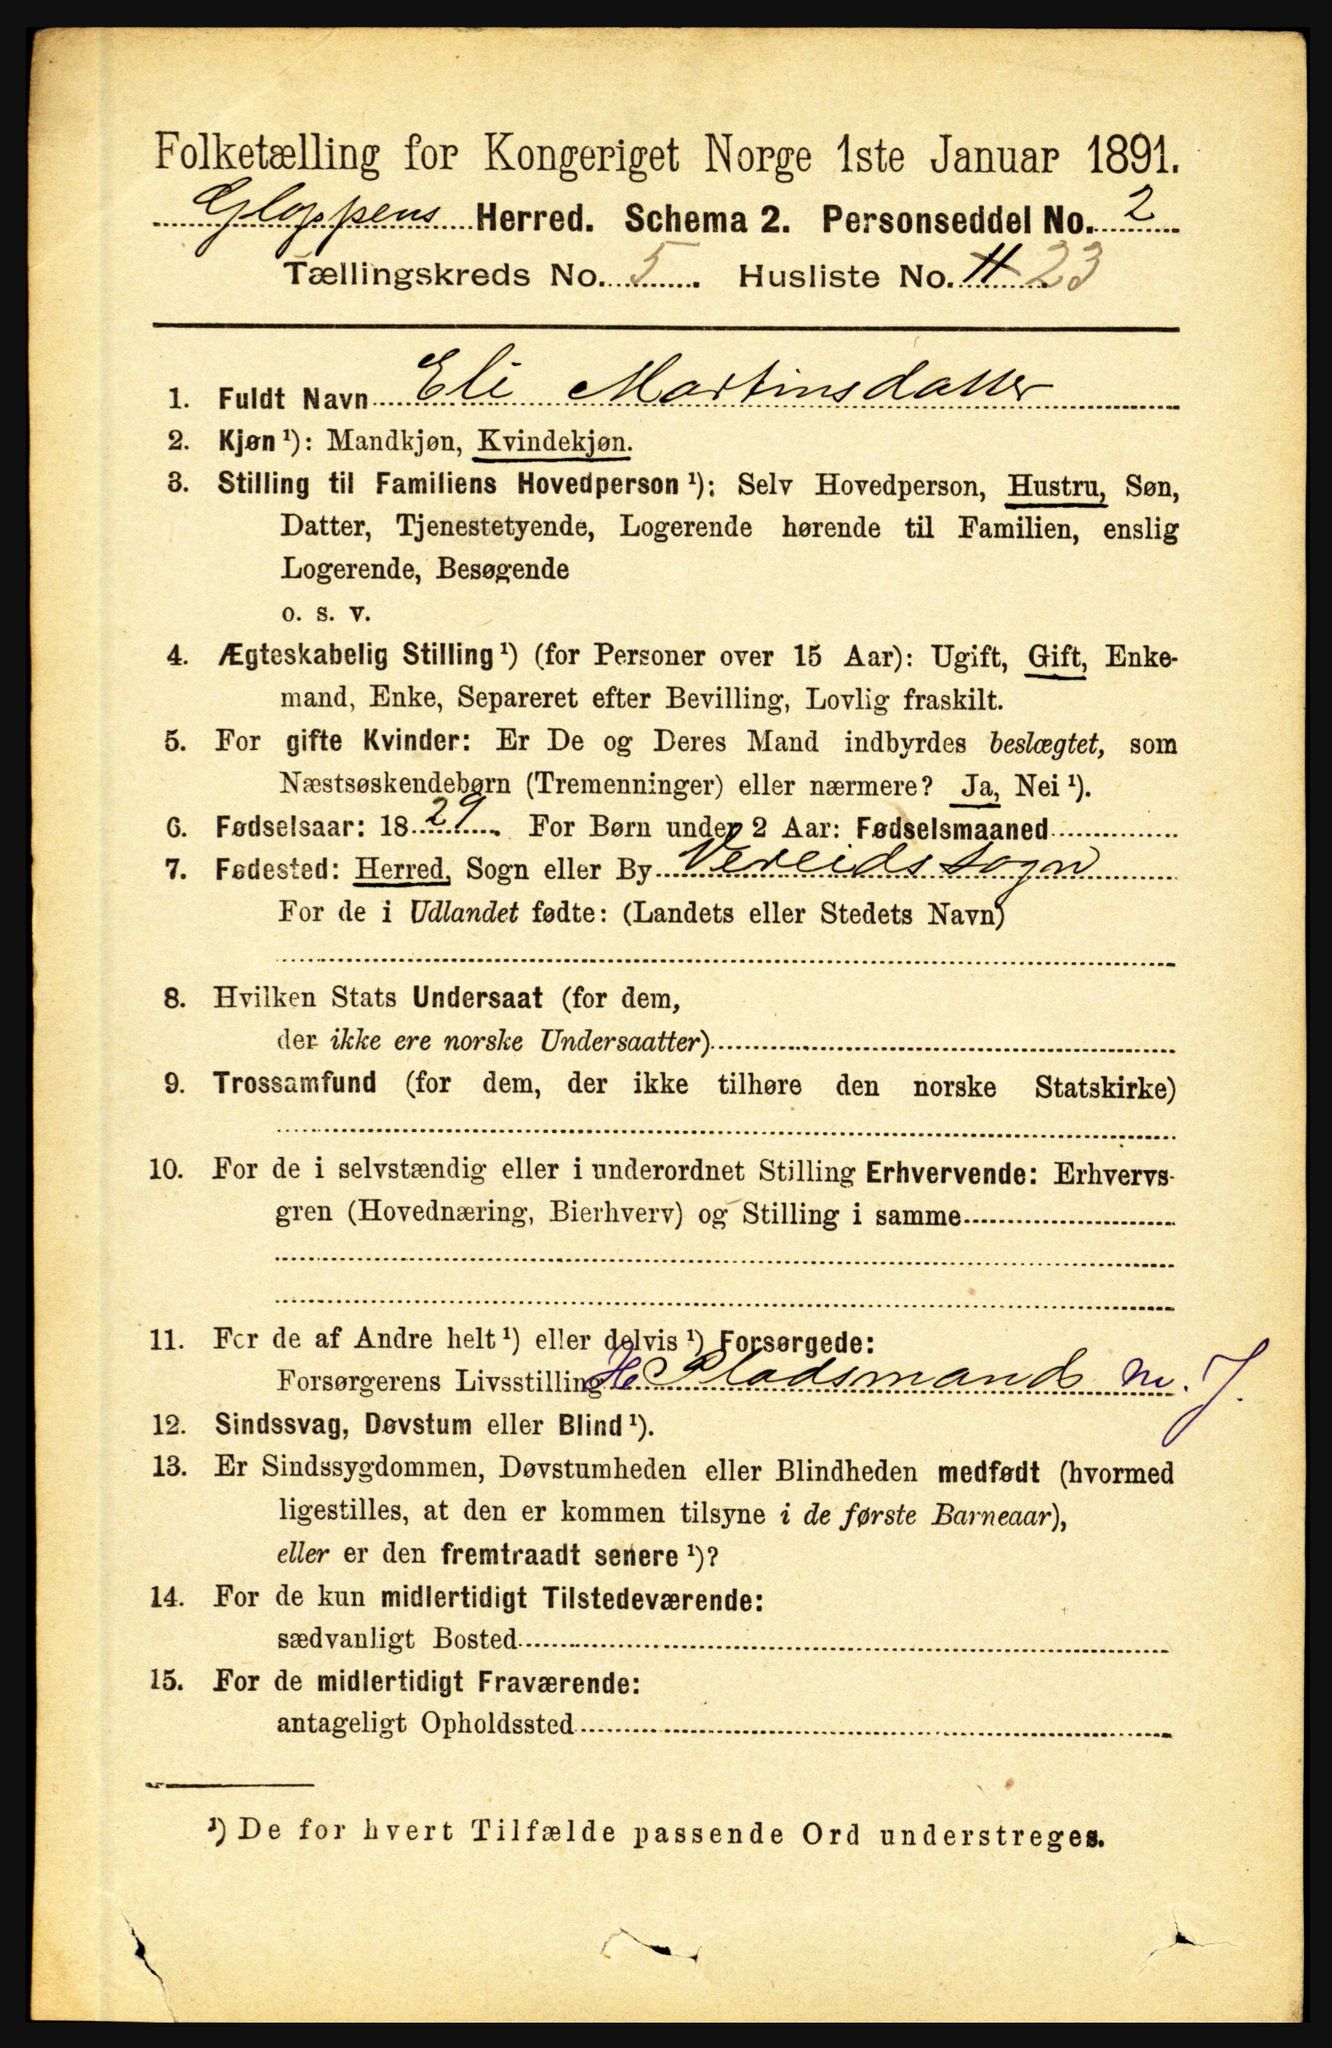 Folketælling for Kongeriget Norge 1ste Januar 1891.
Gloppens Herred. Schema 2. Personseddel No. 2
Tællingskreds No. 5. Husliste No. 11 23
1. Fuldt Navn Eli Martinsdatter
2. Kjøn ¹): Mandkjøn, Kvindekjøn.
3. Stilling til Familiens Hovedperson ¹): Selv Hovedperson, Hustru, Søn,
Datter, Tjenestetyende, Logerende hørende til Familien, enslig
Logerende, Besøgende
o. s. v.
4. Ægteskabelig Stilling ¹) (for Personer over 15 Aar): Ugift, Gift, Enke-
mand, Enke, Separeret efter Bevilling, Lovlig fraskilt.
5. For gifte Kvinder: Er De og Deres Mand indbyrdes beslægtet, som
Næstsøskendebørn (Tremenninger) eller nærmere? Ja, Nei ¹).
6. Fødselsaar: 1829. For Børn under 2 Aar: Fødselsmaaned
7. Fødested: Herred, Sogn eller By Vereids sogn
For de i Udlandet fødte: (Landets eller Stedets Navn)
8. Hvilken Stats Undersaat (for dem,
der ikke ere norske Undersaatter)
9. Trossamfund (for dem, der ikke tilhøre den norske Statskirke)
10. For de i selvstændig eller i underordnet Stilling Erhvervende: Erhvervs-
gren (Hovednæring, Bierhverv) og Stilling i samme
11. For de af Andre helt ¹) eller delvis ¹) Forsørgede:
Forsørgerens Livsstilling H. Pladsmand m. J.
12. Sindssvag, Døvstum eller Blind ¹).
13. Er Sindssygdommen, Døvstumheden eller Blindheden medfødt (hvormed
ligestilles, at den er kommen tilsyne i de første Barneaar),
eller er den fremtraadt senere ¹)?
14. For de kun midlertidigt Tilstedeværende:
sædvanligt Bosted
15. For de midlertidigt Fraværende:
antageligt Opholdssted
¹) De for hvert Tilfælde passende Ord understreges.